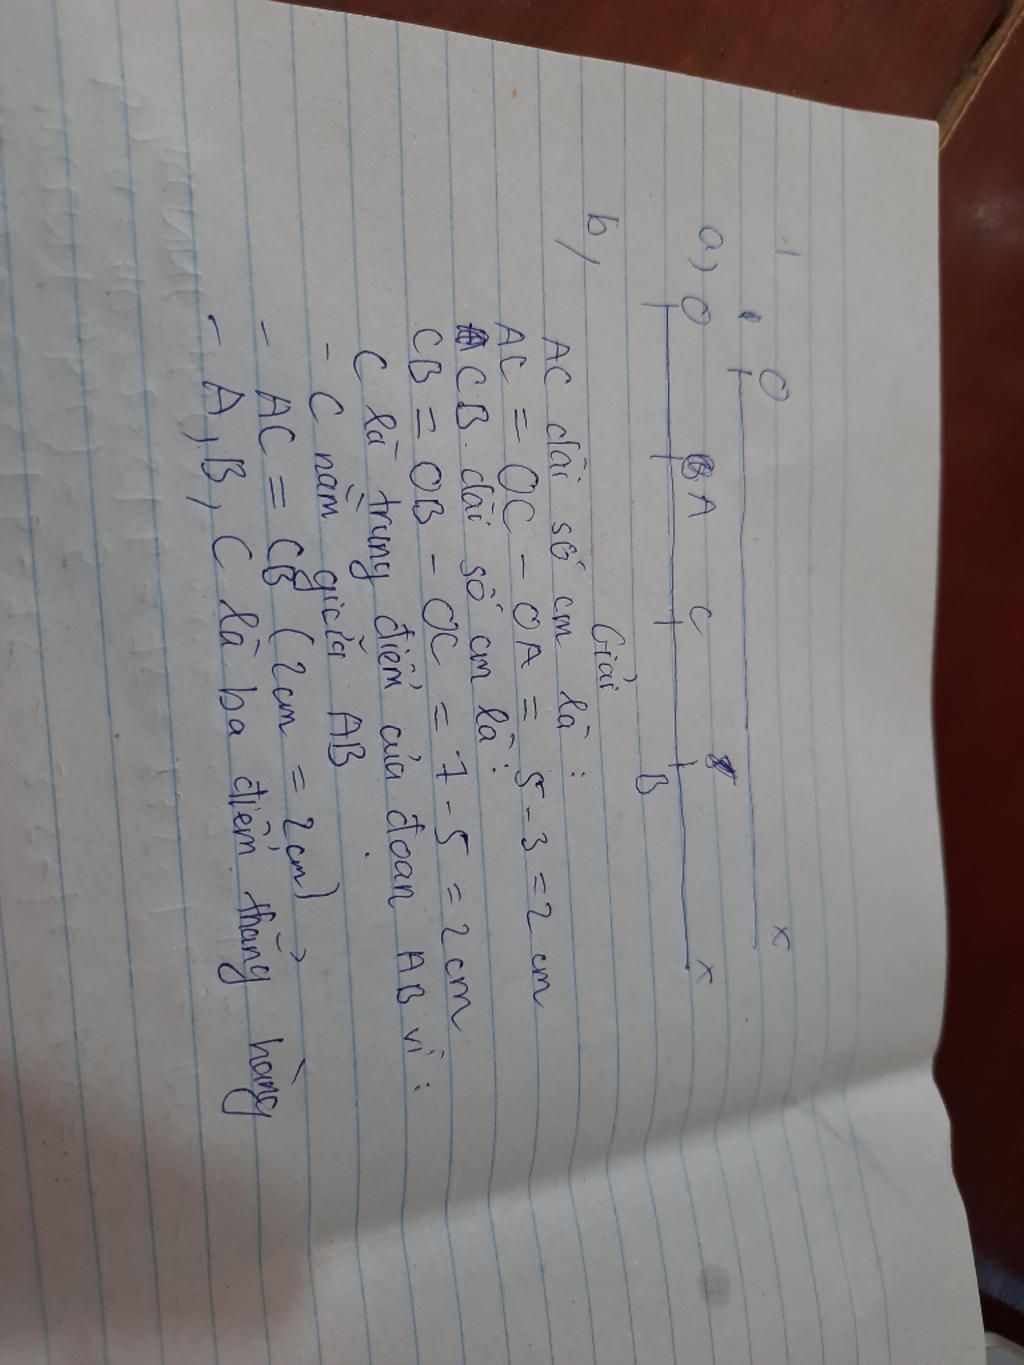 1
O x
a, O A C B x
b,
Giải
AC dài số cm là :
AC = OC - OA = 5 - 3 = 2 cm
CB dài số cm là :
CB = OB - OC = 7 - 5 = 2 cm
C là trung điểm của đoan AB vì :
- C nằm giữa AB
- AC = CB ( 2cm = 2cm)
- A, B, C là ba điểm thẳng hàng